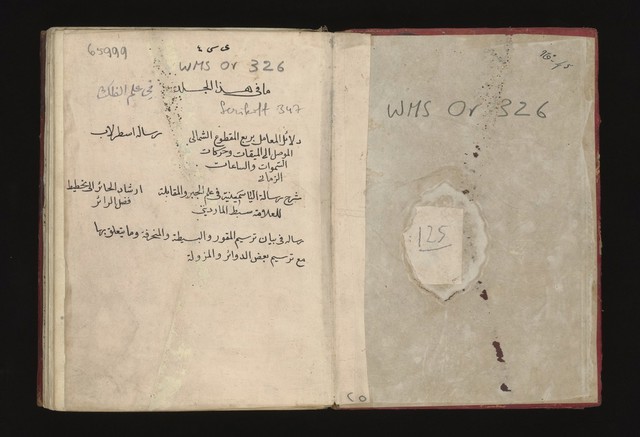 WMS Or 326
916: /5
125
65999
WMS Or 326
ما فى هذا المجلد
فى علم الفلك
Serikoff 347
رسالة اسطرلاب
دلائل المعامل بربع المقطوع الشمالى
الموصل الى الميقات وحركات
السموات والساعات
الزمانية
شرح رسالة الياسمينية فى علم الجبر والمقابلة
للعلامة سبط الماردينى
ارشاد الحائر الى تخطيط
فضل الدائر
رسالة فى بيان ترسيم المقور والبسيطة والمنحرفة وما يتعلق بها
مع ترسيم بعض الدوائر والمزولة